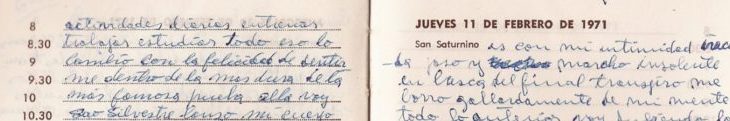 8 actividades diarias entrenar
8.30 trabajar estudiar todo eso lo
9 cambio con la felicidad de sentir
9.30 me dentro de la mas dura de la
10 más famosa prueba alla voy
10.30 San Silvestre lanzo mi cuerpo
JUEVES 11 DE FEBRERO DE 1971
San Saturnino es con mi intimidad
da piso y marcho insolente
en busca del final transpiro me
borro gallardamente de mi mente
todo lo anterior voy